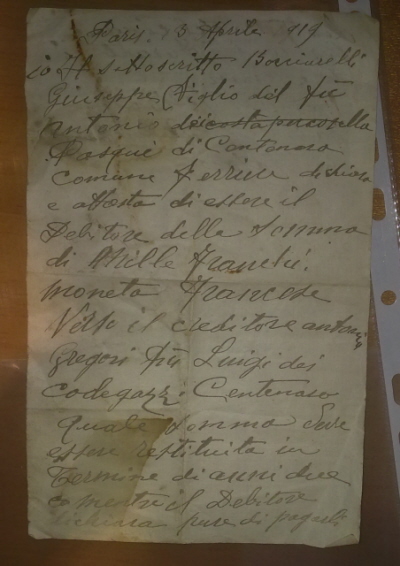 Paris. 3 Aprile 19
io Il sottoscritto Bonnarelli
Giuseppe Figlio del fù
Antonio
Pasqué di Centenaro
comune Ferriere dichiara
e attesta di essere il
Debitore della somma
di Mille Franchi.
moneta Francese
Verso il creditore antonio
Gregori fù Luigi dei
codegazzi Centenaro
quale somma deve
essere restituita in
Termine di anni due
comentri il Debitore
dichiara pure di pagarli